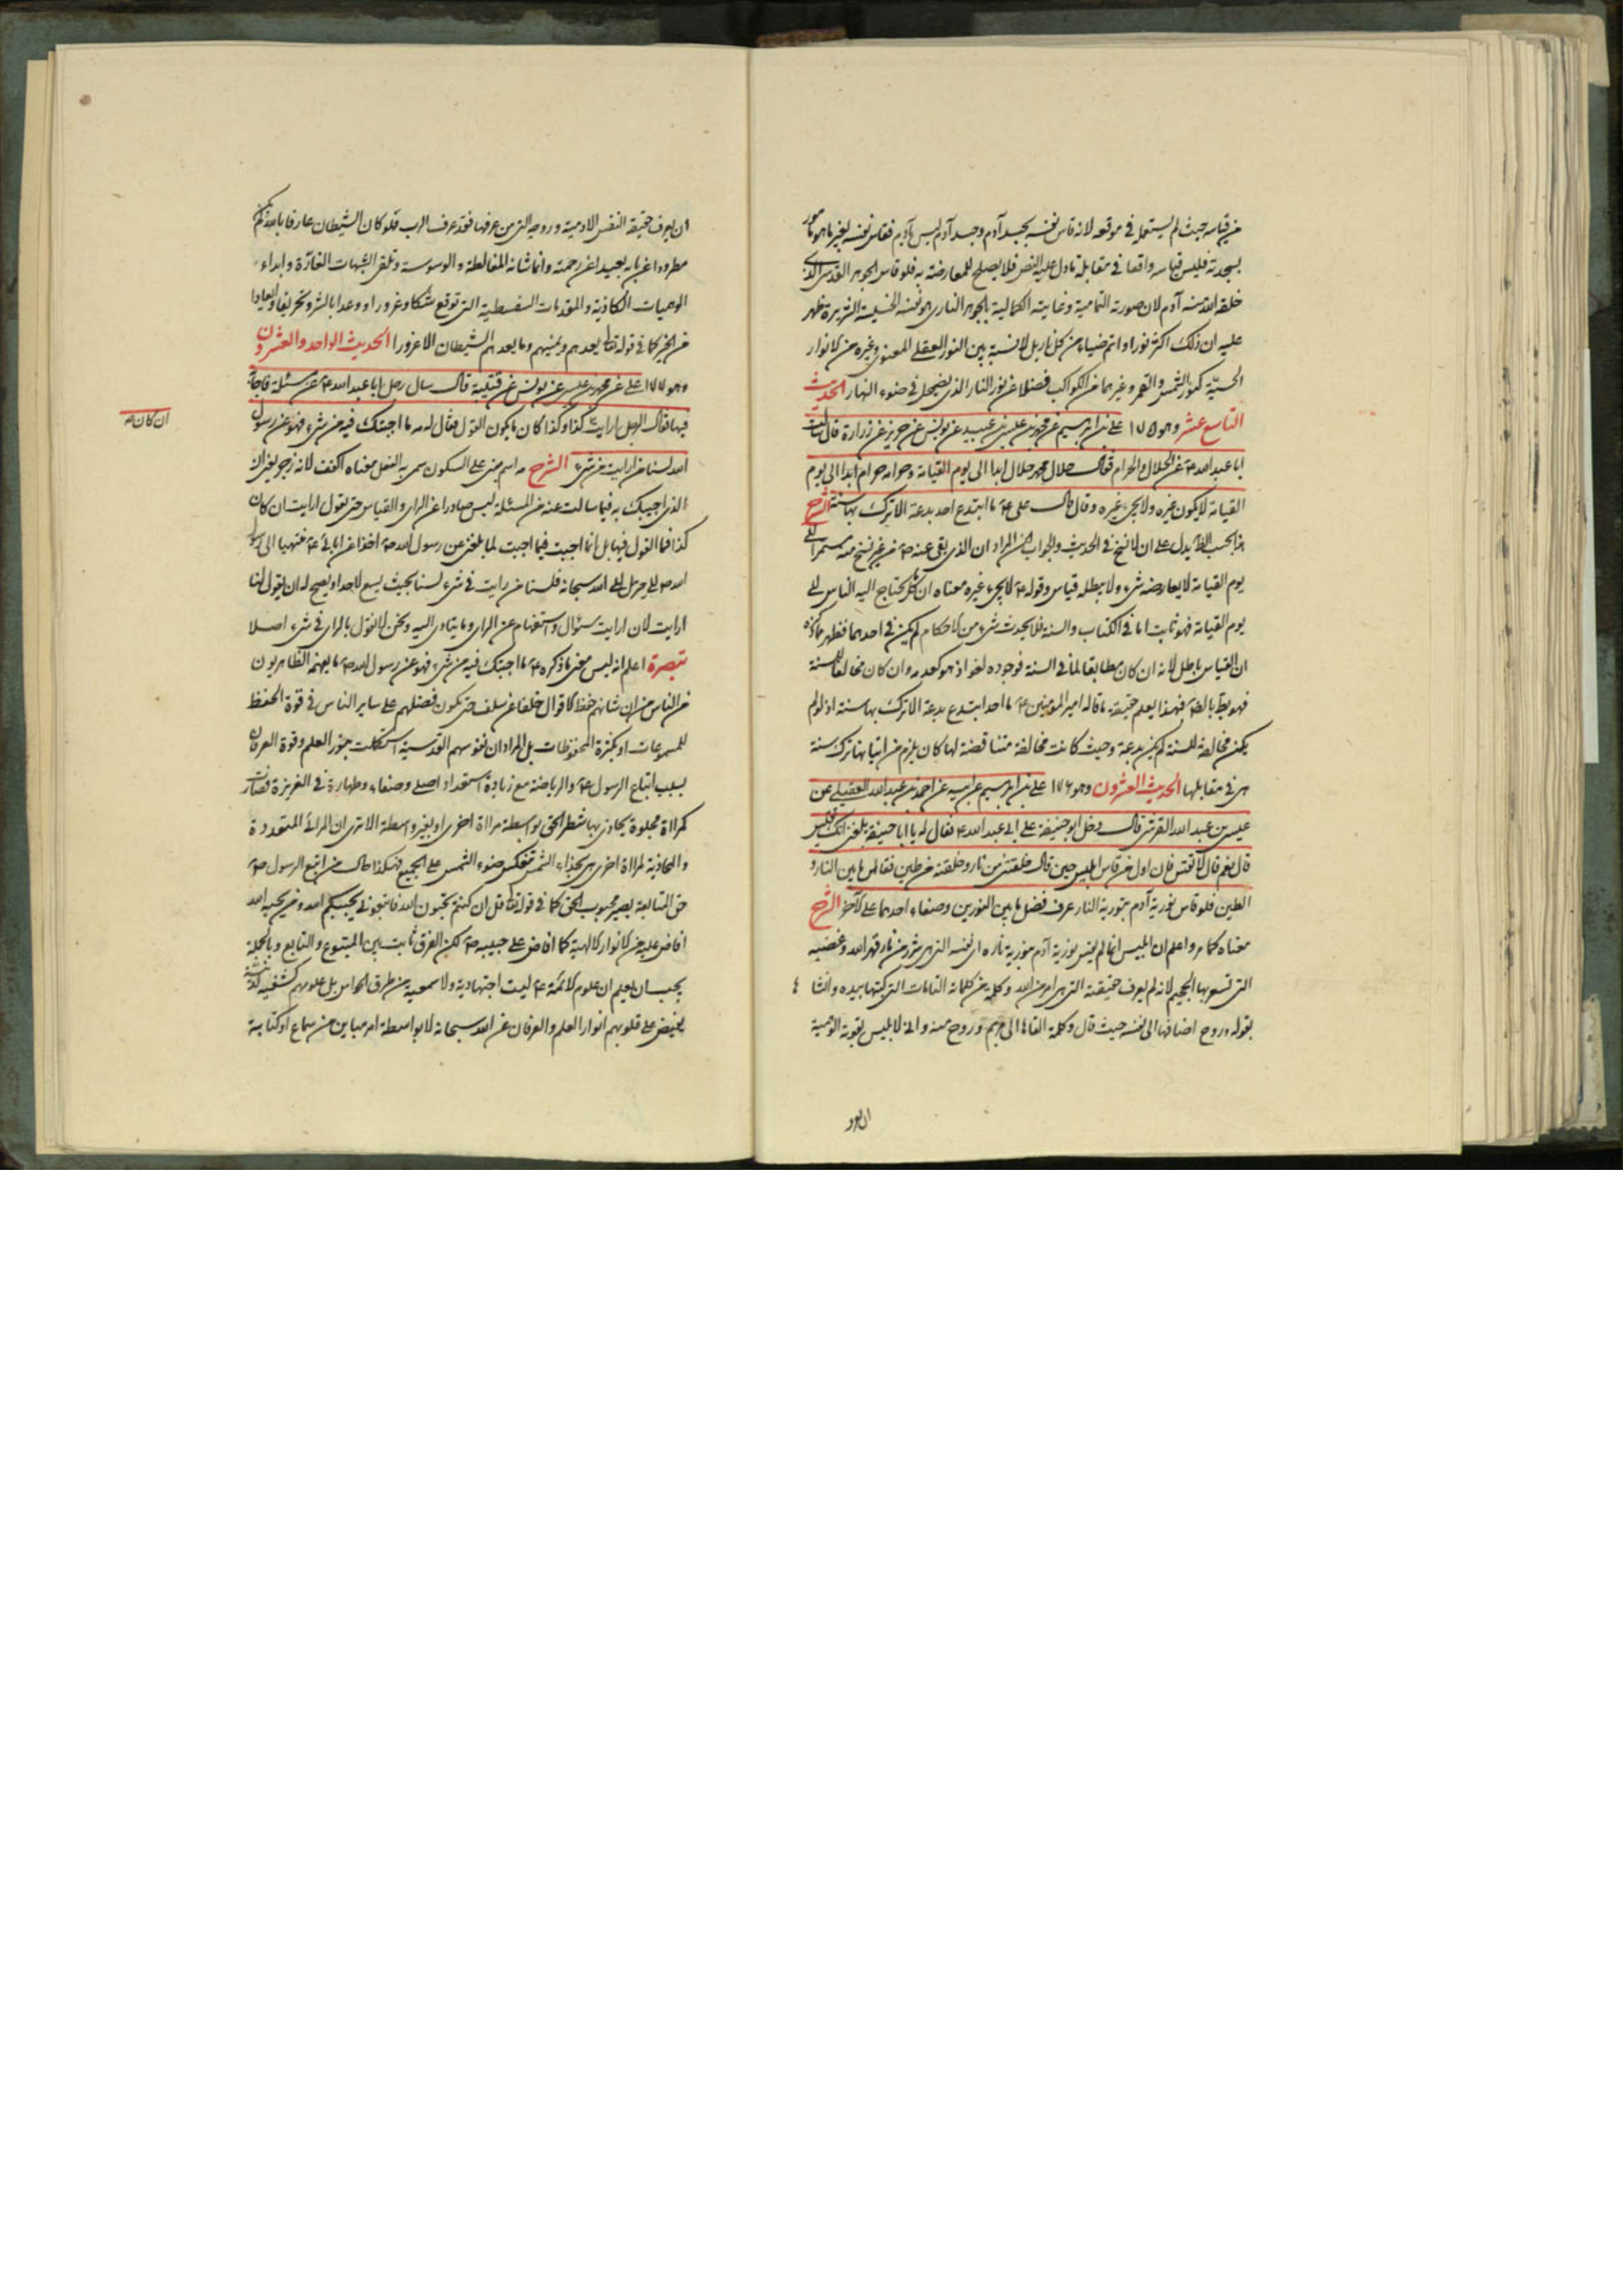 من قياسه حيث لم يستعمل في موقعه لانه قاس نفسه بجسد آدم وجسد آدم ليس بآدم فقاس نفسه بغير ما هو مامور
بسجدته فليس قياسه واقعا في مقابلة ما دل عليه النص فلا يصلح للمعارضة به فلو قاس الجوهر القدسى الذى
خلقه الله منه آدم لان صورته التمامية وغايته الكمالية بالجوهر النارى هو نفسه الخسيسة الشريرة ظهر
عليه ان ذلك اكثر نورا واتم ضياء من كل نار بل لا نسبة بين النور العقلى المعنوى وغيره من الانوار
الحسيّة كنور الشمس والقمر وغيرهما من الكواكب فضلا عن نور النار الذى يضمحل في ضوء النهار الحديث
التاسع عشر وهو ١٧٥ على بن ابرهيم عن محمد بن عيسى بن عبيد عن يونس عن حريز عن زرارة قال سالت
ابا عبد الله ع عن الحلال والحرام فقال حلال محمد حلال ابدا الى يوم القيامة وحرامه حرام ابدا الى يوم
القيامة لا يكون غيره ولا يجىء غيره وقال قال على ع ما ابتدع احد بدعة الا ترك بها سنة الشرح
هذا بحسب الظ يدل على ان لا نسخ في الحديث والجواب المراد ان الذى بقى عنه ص من غير نسخ منه مستمر الى
يوم القيامة لا يعارضه شىء ولا يبطله قياس وقوله ع لا يجىء غيره معناه ان كل ما يحتاج اليه الناس الى
يوم القيامة فهو ثابت اما في الكتاب والسنة فلا يحدث شىء من الاحكام لم يكن في احدهما فظهر مما ذكره
ان القياس باطل لانه ان كان مطابقا لما في السنة فوجوده لغو اذ هو كعدمه وان كان مخالفا للسنة
فهو بط بالنص فبهذا يعلم حقيقة ما قاله امير المؤمنين ع ما احد ابتدع بدعة الا ترك بها سنة اذ لو لم
يكن مخالفة للسنة لم يكن بدعة وحيث كانت مخالفة متناقضة لها كان يلزم من اتيانها ترك سنة
هى في مقابلها الحديث العشرون وهو ١٧٦ على بن ابرهيم عن ابيه عن احمد بن عبد الله العقيلى عن
عيسى بن عبد الله القرشى قال دخل ابو حنيفة على ابى عبد الله ع فقال له يا ابا حنيفة بلغنى انك تقيس
قال نعم قال لا تقس فان اول من قاس ابليس حين قال خلقتنى من نار وخلقته من طين فقاس ما بين النار و
الطين فلو قاس نورية آدم بنورية النار عرف فضل ما بين النورين وصفاء احدهما على الآخر الشرح
معناه كما مر واعلم ان ابليس انما لم يقس نورية آدم بنورية ناره اى نفسه التى هى شرر من نار قهر الله وغضبه
التى تسعر بها الجحيم لانه لم يعرف حقيقته التى هى امر من الله وكلمة من كلماته التامات التى كتبها بيده وانشا
بقوله وروح اضافها الى نفسه حيث قال وكلمة القاها الى مريم وروح منه وانى لابليس بقوته الوهمية
ان يعرف
ان يعرف حقيقة النفس الادمية وروحه التى من عرفها فقد عرف الرب فلو كان الشيطان عارفا بالله لم يكن
مطرودا عن بابه بعيدا عن رحمته وانما شانه المغالطة والوسوسة وتلقى الشبهات الغارّة وابداء
الوهميات الكاذبة والمقدمات السفسطية التى توقع شكا وغرورا ووعدا بالشر وتخويفا وايعادا
من الخير كما في قوله تعا يعدهم ويمنيهم وما يعدهم الشيطان الا غرورا الحديث الواحد والعشرون
وهو ١٧٧ على عن محمد بن عيسى عن يونس عن قتيبة قال سال رجل ابا عبد الله ع عن مسئلة فاجابه
فيها فقال الرجل ارايت كذا وكذا كان ما يكون القول فقال له مه ما اجبتك فيه من شىء فهو عن رسول
ان كان
الله لسنا من ارايت من شىء الشرح مه اسم مبنى على السكون سمى به الفعل معناه اكفف لانه زجر يعنى ان
الذى اجيبك به فيما سالت عنه من المسئلة ليس صادرا عن الراى والقياس حتى تقول ارايت ان كان
كذا فما القول فيها بل انما اجبت فيما اجبت لما بلغنى عن رسول الله ص اخذا عن ابائى ع منتهيا الى رسول
الله ص الى جبرئيل الى الله سبحانه فلسنا من رايت في شىء لسنا بحيث يسع لاحد او يصح له ان يقول لنا
ارايت لان ارايت سؤال واستفهام عن الراى وما يتادى اليه ونحن لا نقول بالراى في شىء اصلا
تبصرة اعلم انه ليس معنى ما ذكره ع ما اجبتك فيه من شىء فهو عن رسول الله ص ما يفهمه الظاهريون
من الناس من ان شانهم حفظ الاقوال خلفا عن سلف حتى يكون فضلهم على ساير الناس في قوة الحفظ
للمسموعات او بكثرة المحفوظات بل المراد ان نفوسهم القدسية استكملت بنور العلم وقوة العرفان
بسبب اتباع الرسول ع والرياضة مع زيادة استعداد اصلى وصفاء وطهارة في الغريزة فصار
كمراة مجلوة يحاذى بها شطر الحق بواسطة مراة اخرى او بغير واسطة الا ترى ان المرائى المتعددة
والمحاذية لمراة اخرى هى بحذاء الشمس تنعكس ضوء الشمس على الجميع فهكذا حال من اتبع الرسول ص
حق المتابعة يصير محبوب الحق كما في قوله تعا قل ان كنتم تحبون الله فاتبعونى يحببكم الله ومن يحبه الله
افاض عليه من الانوار الالهية كما افاض على حبيبه ص لكن الفرق ثابت بين المتبوع والتابع وبالجملة
يجب ان يعلم ان علوم الائمة ع ليست اجتهادية ولا سمعية من طرق الحواس بل علومهم كشفية لدنية
يفيض على قلوبهم انوار العلم والعرفان عن الله سبحانه لا بواسطة امر مباين من سماع او كتابة